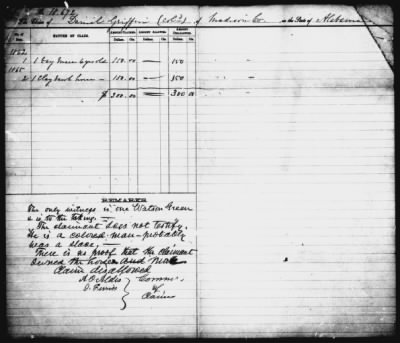 No. 18,672
The Claim of Daniel Griffin (col'd) of Madison Co. in the State of Alabama
NATURE OF CLAIM. AMOUNT CLAIMED. AMOUNT ALLOWED. AMOUNT DISALLOWED.
Dollars. Cts. Dollars. Cts. Dollars. Cts.
1862
1. 1 Bay Mare 6 yrs old 150.00 — 150
1865
2 1 Claybank horse — 150.00 — 150
$300.00 — 300 00
REMARKS.
The only witness is one Watson Green
as to the taking. —
The claimant does not testify.
He is a colored man - probably
was a slave. —
There is no proof that the claimant
owned the horse and mare
Claim disallowed
A. O. Aldis
O. Ferriss
Commrs
of
Claims